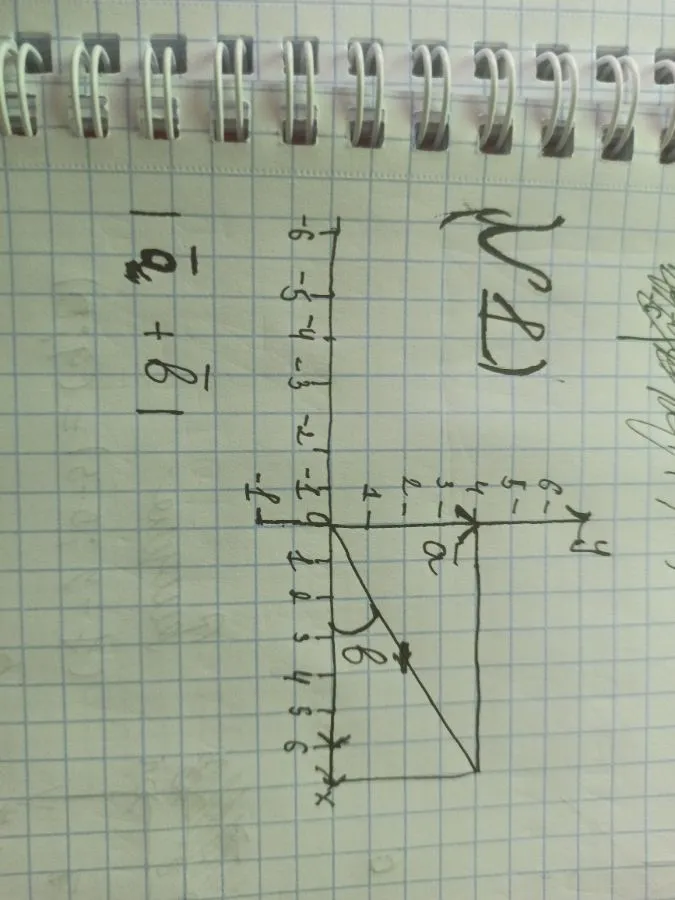 N 1)
y
6
5
4
3
2
1
a
b
-6 -5 -4 -3 -2 -1 0 1 2 3 4 5 6 x
-1
|a + b|